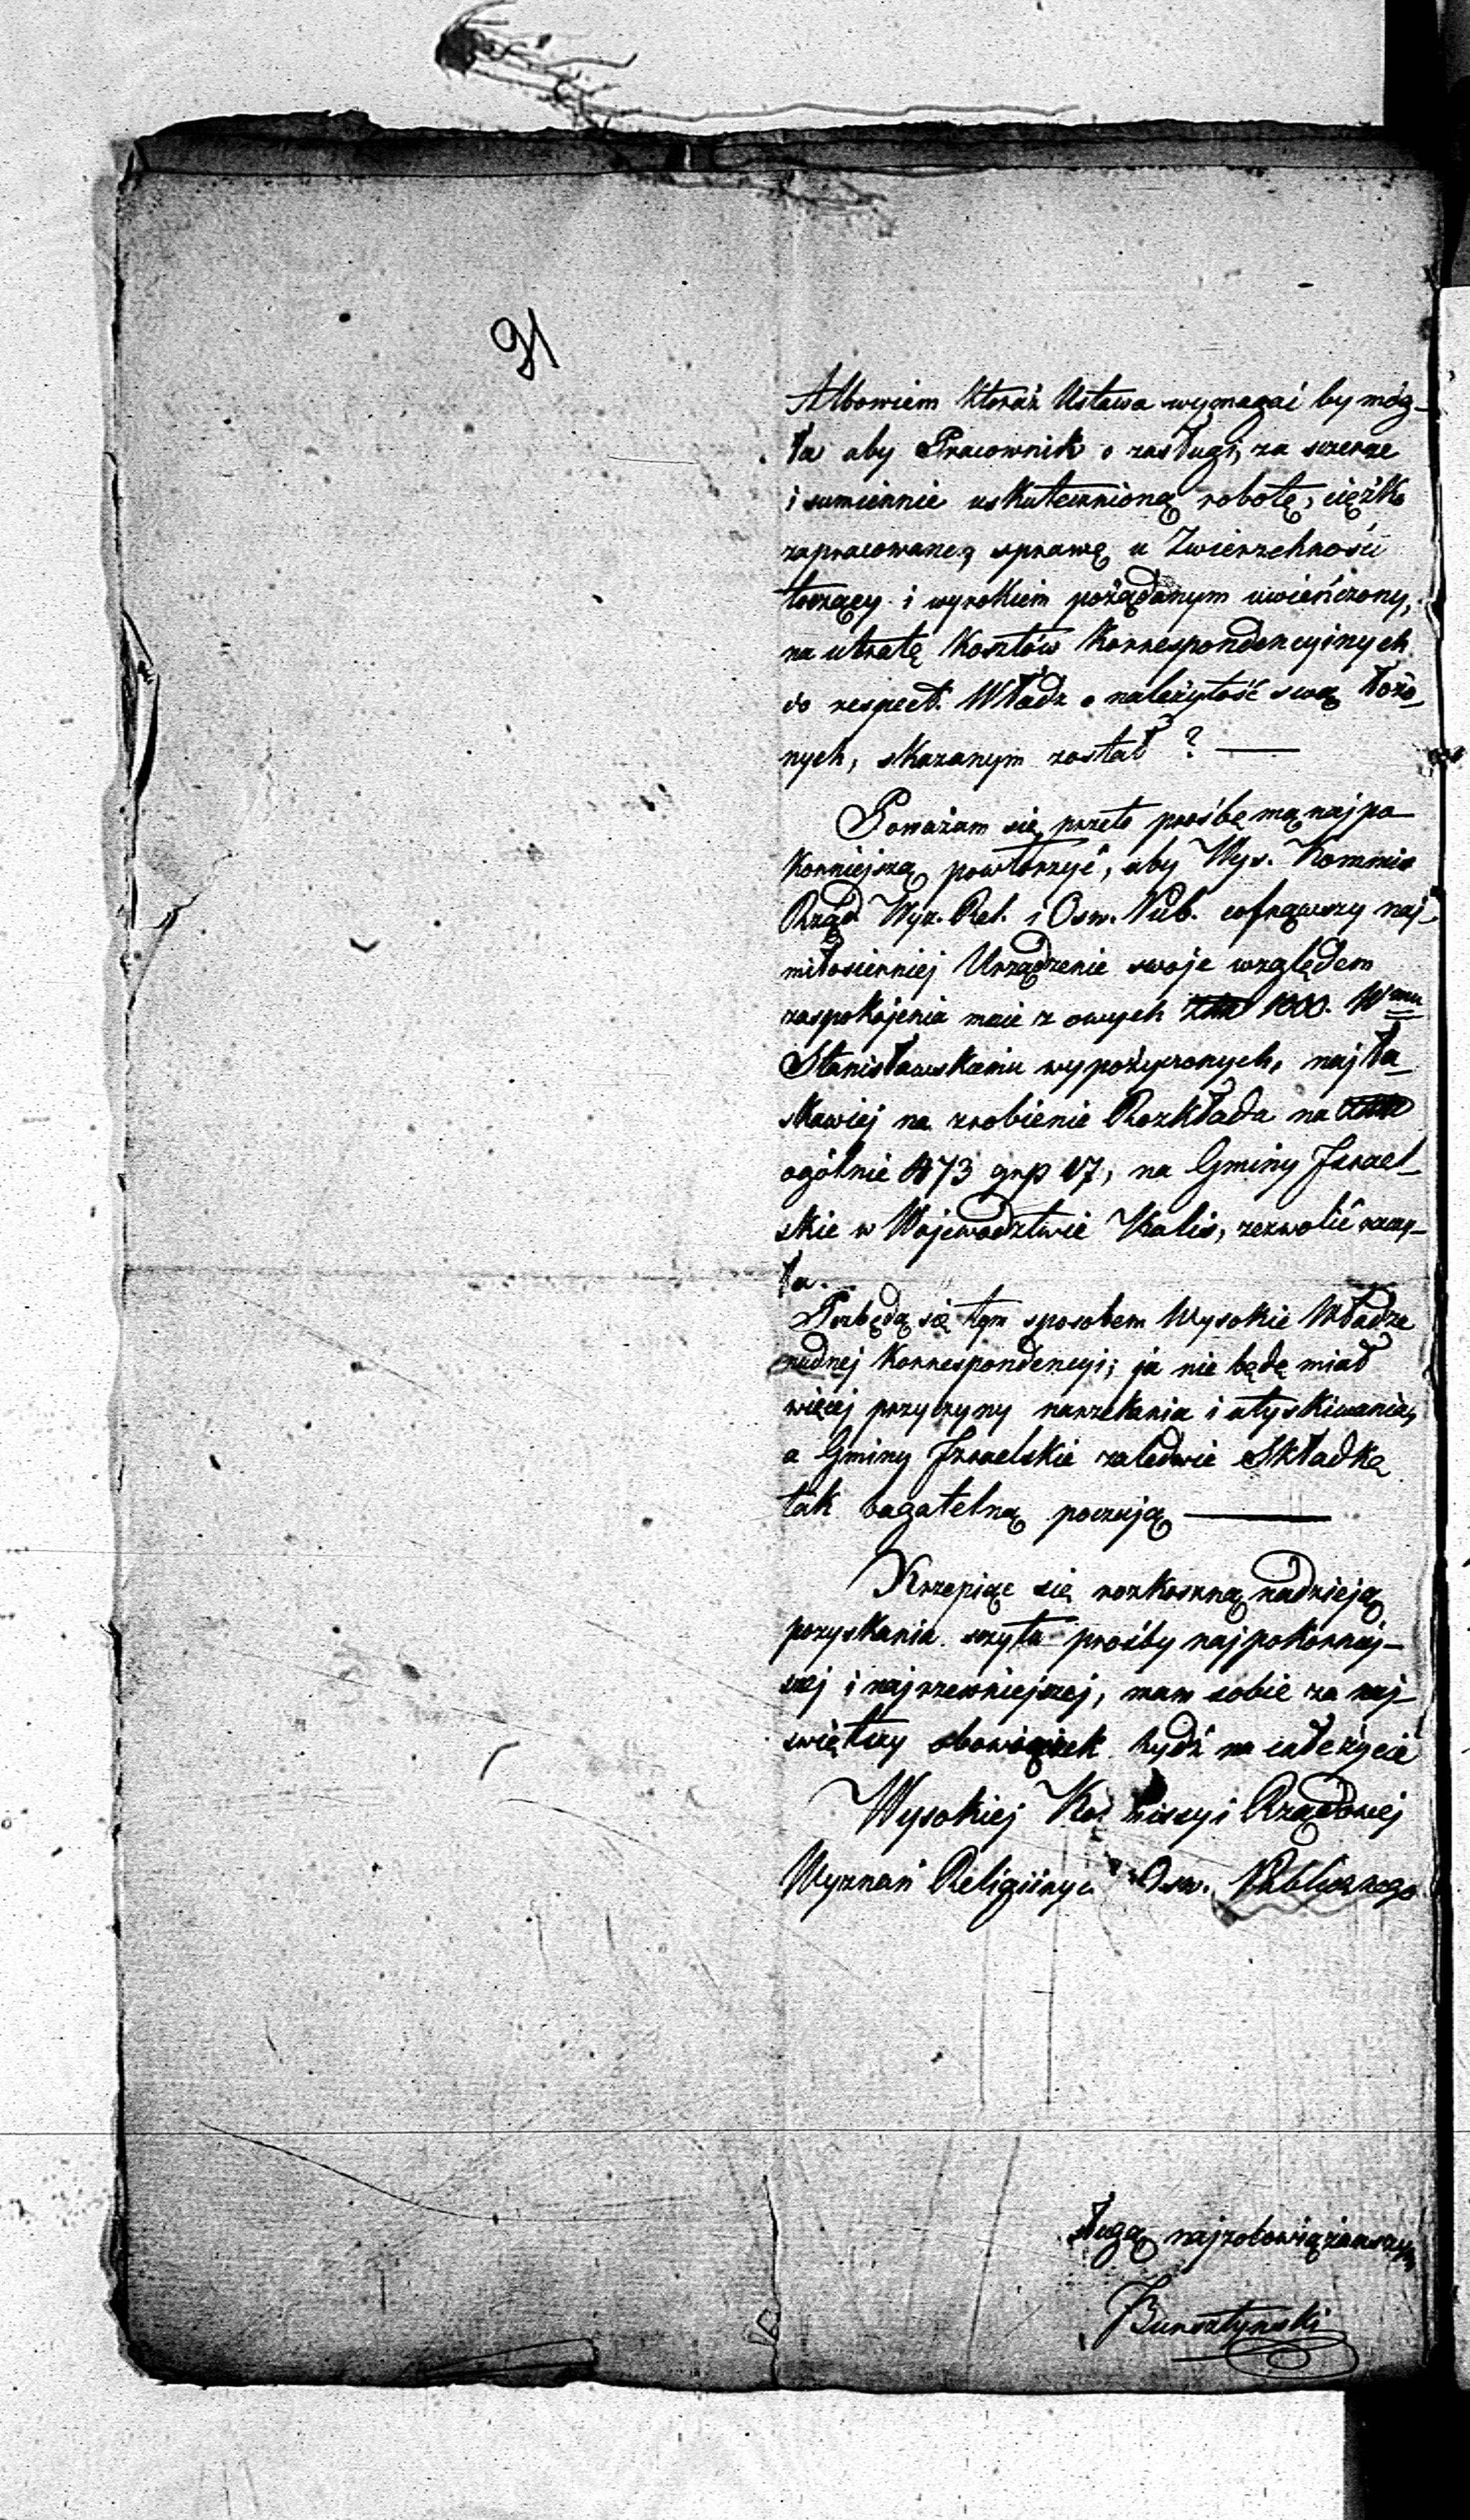 91
Albowiem któraż Ustawa wymagać by móg-
ła aby Pracownik o zasługi, za szczerze
i sumiennie uskutecznioną robotę, ciężko
zapracowane, sprawę u Zwierzchności
toczący i wyrokiem pożądanym uwieńczony,
na utratę kosztów korrespondencyinych
do respect. Władz o należytość swą łożo-
nych, skazanym został? —
Poważam się przeto prośbę mą najpo-
korniejszą powtórzyć, aby Wys. Kommis
Rząd. Wyz. Rel. i Osw. Pub. cofnąwszy naj-
miłosierniej Urządzenie swoje względem
zaspokojenia mnie z owych 1000. W
Stanisławskiemu wypożyczonych, najła-
skawiej na zrobienie Rozkładu na
ogólnie 473 grp 17, na Gminy Izrael-
skie w Województwie Kalis, zezwolić raczy-
ła.
Pozbędą się tym sposobem Wysokie Władze
nudnej korrespondencyi; ja nie będę miał
więcej przyczyny narzekania i utyskiwania,
a Gminy Izraelskie zaledwie Składkę
tak bagatelną poczują —
Krzepiąc się rozkoszną nadzieją
pozyskania skutku prośby najpokorniej-
szej i najrzewniejszej, mam sobie za naj-
świętszy obowiązek bydź na całe życie
Wysokiej Kommissyi Rządowej
Wyznań Religiinych Osw. Publicznego
sługą najzobowiązańszym
Bursztynski